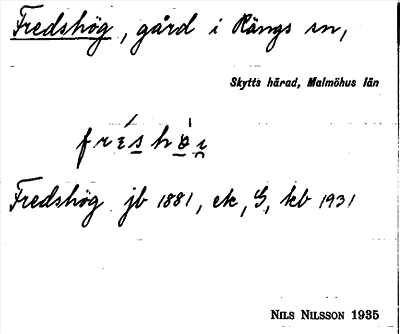 Fredshög, gård i Rängs sn,
Skytts härad, Malmöhus län
Fredshög jb 1881, ek, G, kb 1931
NILS NILSSON 1935